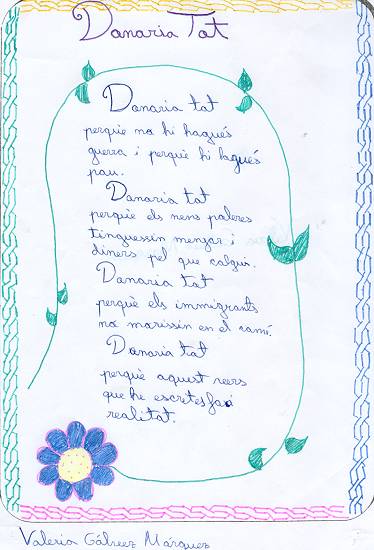 Donaria Tot
Donaria tot
perquè no hi hagués
guerra i perquè hi hagués
pau.
Donaria tot
perquè els nens pobres
tinguessin menjar i
diners pel que calgui.
Donaria tot
perquè els immigrants
no morissin en el camí.
Donaria tot
perquè aquest vers
que he escrit es faci
realitat.
Valeria Gálvez Márquez